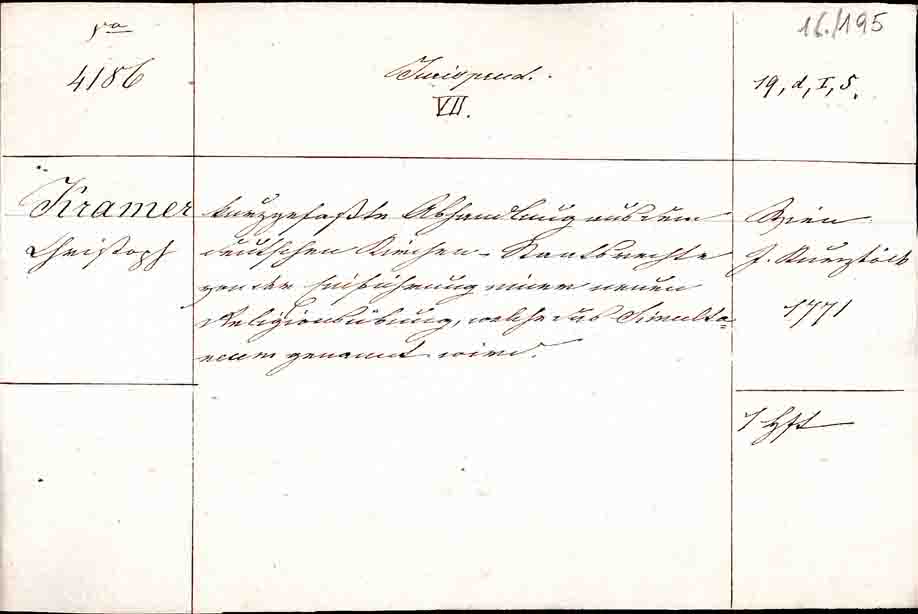 16./195
4186
Jurisprud.
VII.
19, d, I, 5.
Kramer
Christoph
kurzgefaßte Abhandlung aus dem
deutschen Kirchen-Staatsrechte
von der Einführung einer neuen
Religionsübung, welche das Simulta=
neum genannt wird.
Wien
J. Kurzböck
1771
1 Hft